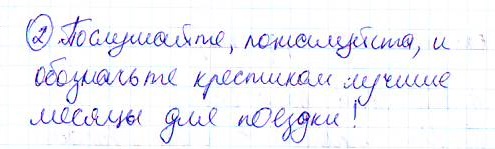 ② Послушайте, пожалуйста, и
обозначьте крестиком лучшие
месяцы для поездки!